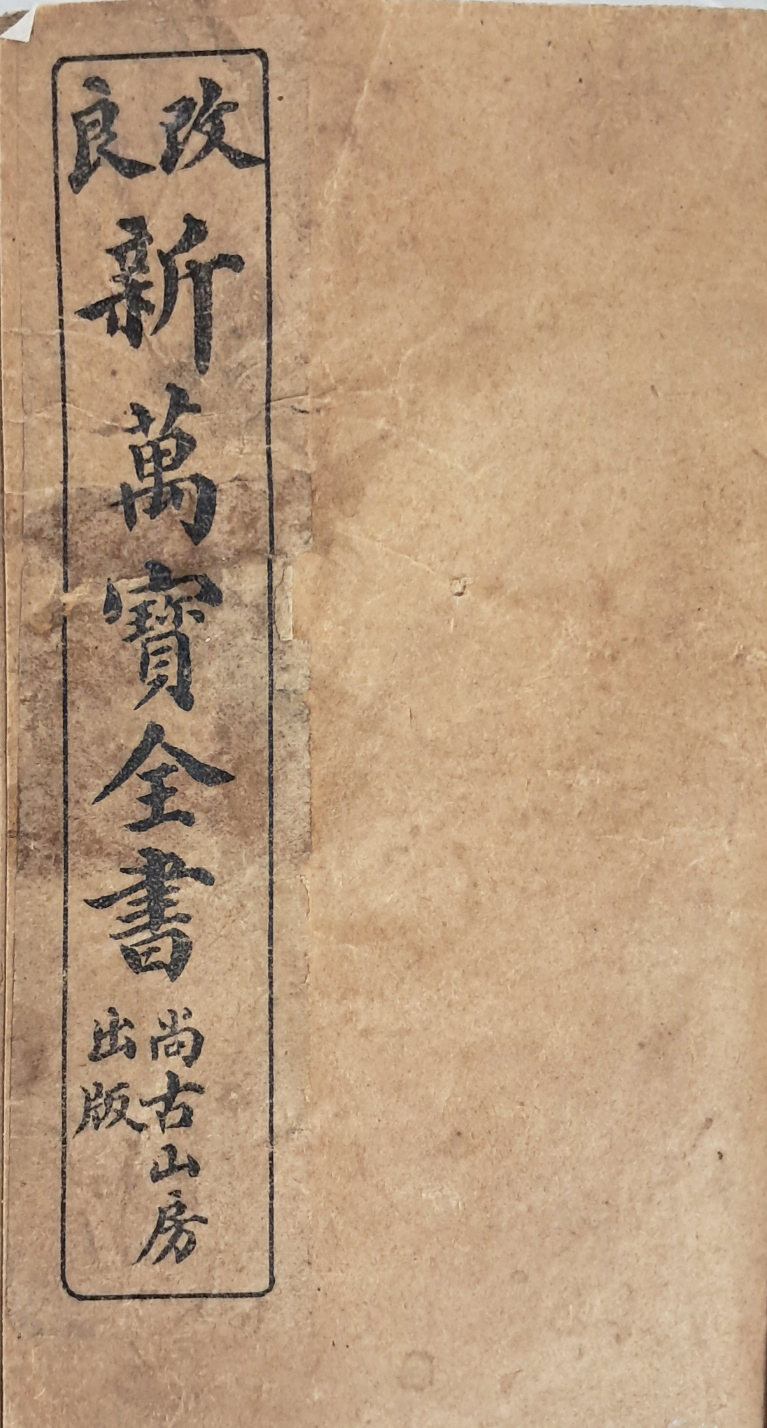 改良
新萬寳全書
尚古山房
出版